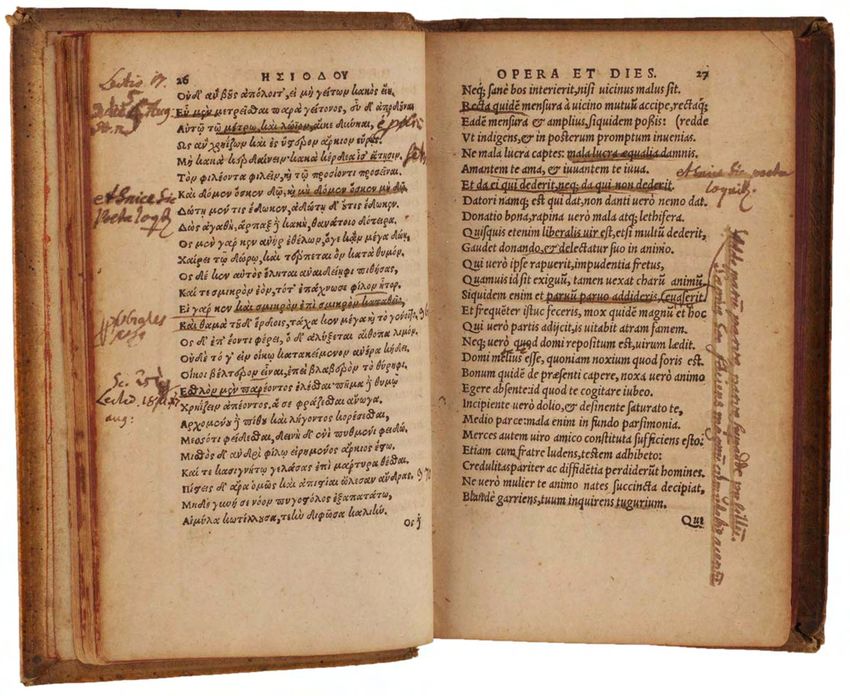 Lectio 17.
26 ΗΣΙΟΔΟΥ
Οὐδ' ἂν βοῦς ἀπόλοιτ', εἰ μὴ γείτων κακὸς εἴη.
Εὖ μὲν μετρεῖσθαι παρὰ γείτονος, εὖ δ' ἀποδοῦναι
Αὐτῷ τῷ μέτρῳ, καὶ λώϊον, αἴκε δύνηαι,
Ὡς ἂν χρηΐζων καὶ ἐς ὕστερον ἄρκιον εὕρῃς.
Μὴ κακὰ κερδαίνειν κακὰ κέρδεα ἶσ' ἄτῃσιν.
Τὸν φιλέοντα φιλεῖν, καὶ τῷ προσιόντι προσεῖναι.
Καὶ δόμεν ὅς κεν δῷ, καὶ μὴ δόμεν ὅς κεν μὴ δῷ.
Δώτῃ μέν τις ἔδωκεν, ἀδώτῃ δ' οὔτις ἔδωκεν.
Δὼς ἀγαθὴ, ἅρπαξ δὲ κακὴ, θανάτοιο δότειρα.
Ὃς μὲν γάρ κεν ἀνὴρ ἐθέλων, ὅγε κἂν μέγα δώῃ,
Χαίρει τῷ δώρῳ, καὶ τέρπεται ὃν κατὰ θυμόν.
Ὃς δέ κεν αὐτὸς ἕληται ἀναιδείηφι πιθήσας,
Καί τε σμικρὸν ἐὸν, τότ' ἐπάχνωσε φίλον ἦτορ.
Εἰ γάρ κεν καὶ σμικρὸν ἐπὶ σμικρῷ καταθεῖο,
Καὶ θαμὰ τοῦδ' ἔρδοις, τάχα κεν μέγα καὶ τὸ γένοιτο.
Ὃς δ' ἐπ' ἐόντι φέρει, ὁ δ' ἀλύξεται αἴθοπα λιμόν.
Οὐδὲ τό γ' εἰν οἴκῳ κατακείμενον ἀνέρα κήδει.
Οἴκοι βέλτερον εἶναι, ἐπεὶ βλαβερὸν τὸ θύρηφι.
Ἐσθλὸν μὲν παρεόντος ἑλέσθαι· πῆμα δὲ θυμῷ
Χρηΐζειν ἀπεόντος, ἅ σε φράζεσθαι ἄνωγα.
Ἀρχομένου δὲ πίθου καὶ λήγοντος κορέσασθαι,
Μεσσόθι φείδεσθαι, δεινὴ δ' ἐνὶ πυθμένι φειδώ.
Μισθὸς δ' ἀνδρὶ φίλῳ εἰρημένος ἄρκιος ἔστω.
Καί τε κασιγνήτῳ γελάσας ἐπὶ μάρτυρα θέσθαι.
Πίστεις δ' ἄρα ὁμῶς καὶ ἀπιστίαι ὤλεσαν ἄνδρας.
Μηδὲ γυνή σε νόον πυγοστόλος ἐξαπατάτω,
Αἱμύλα κωτίλλουσα, τεὴν διφῶσα καλιήν.
Ὃς δὲ
OPERA ET DIES. 27
Neq; sanè bos interierit, nisi uicinus malus sit.
Recta quidē mensura à uicino mutuū accipe, rectaq;
Eadē mensura & amplius, siquidem poßis: (redde
Vt indigens, & in posterum promptum inuenias.
Ne mala lucra captes: mala lucra æqualia damnis.
Amantem te ama, & iuuantem te iuua.
Et da ei qui dederit, neq; da qui non dederit.
Datori namq; est qui dat, non danti uerò nemo dat.
Donatio bona, rapina uerò mala atq; lethifera.
Quisquis etenim liberalis uir est, etsi multū dederit,
Gaudet donando, & delectatur suo in animo.
Qui uerò ipse rapuerit, impudentia fretus,
Quamuis id sit exiguū, tamen uexat charū animū.
Siquidem enim et paruū paruo addideris,
Et frequēter istuc feceris, mox quidē magnū et hoc
Qui uerò partis adijcit, is uitabit atram famem.
Neq; uerò quod domi repositum est, uirum lædit.
Domi melius esse, quoniam noxium quod foris est.
Bonum quidē de præsenti capere, noxa uerò animo
Egere absente: id quod te cogitare iubeo.
Incipiente uerò dolio, & desinente saturato te,
Medio parce: mala enim in fundo parsimonia.
Merces autem uiro amico constituta sufficiens esto:
Etiam cum fratre ludens, testem adhibeto:
Credulitas pariter ac diffidētia perdiderūt homines.
Ne uerò mulier te animo nates succincta decipiat,
Blandè garriens, tuum inquirens tugurium.
Qui